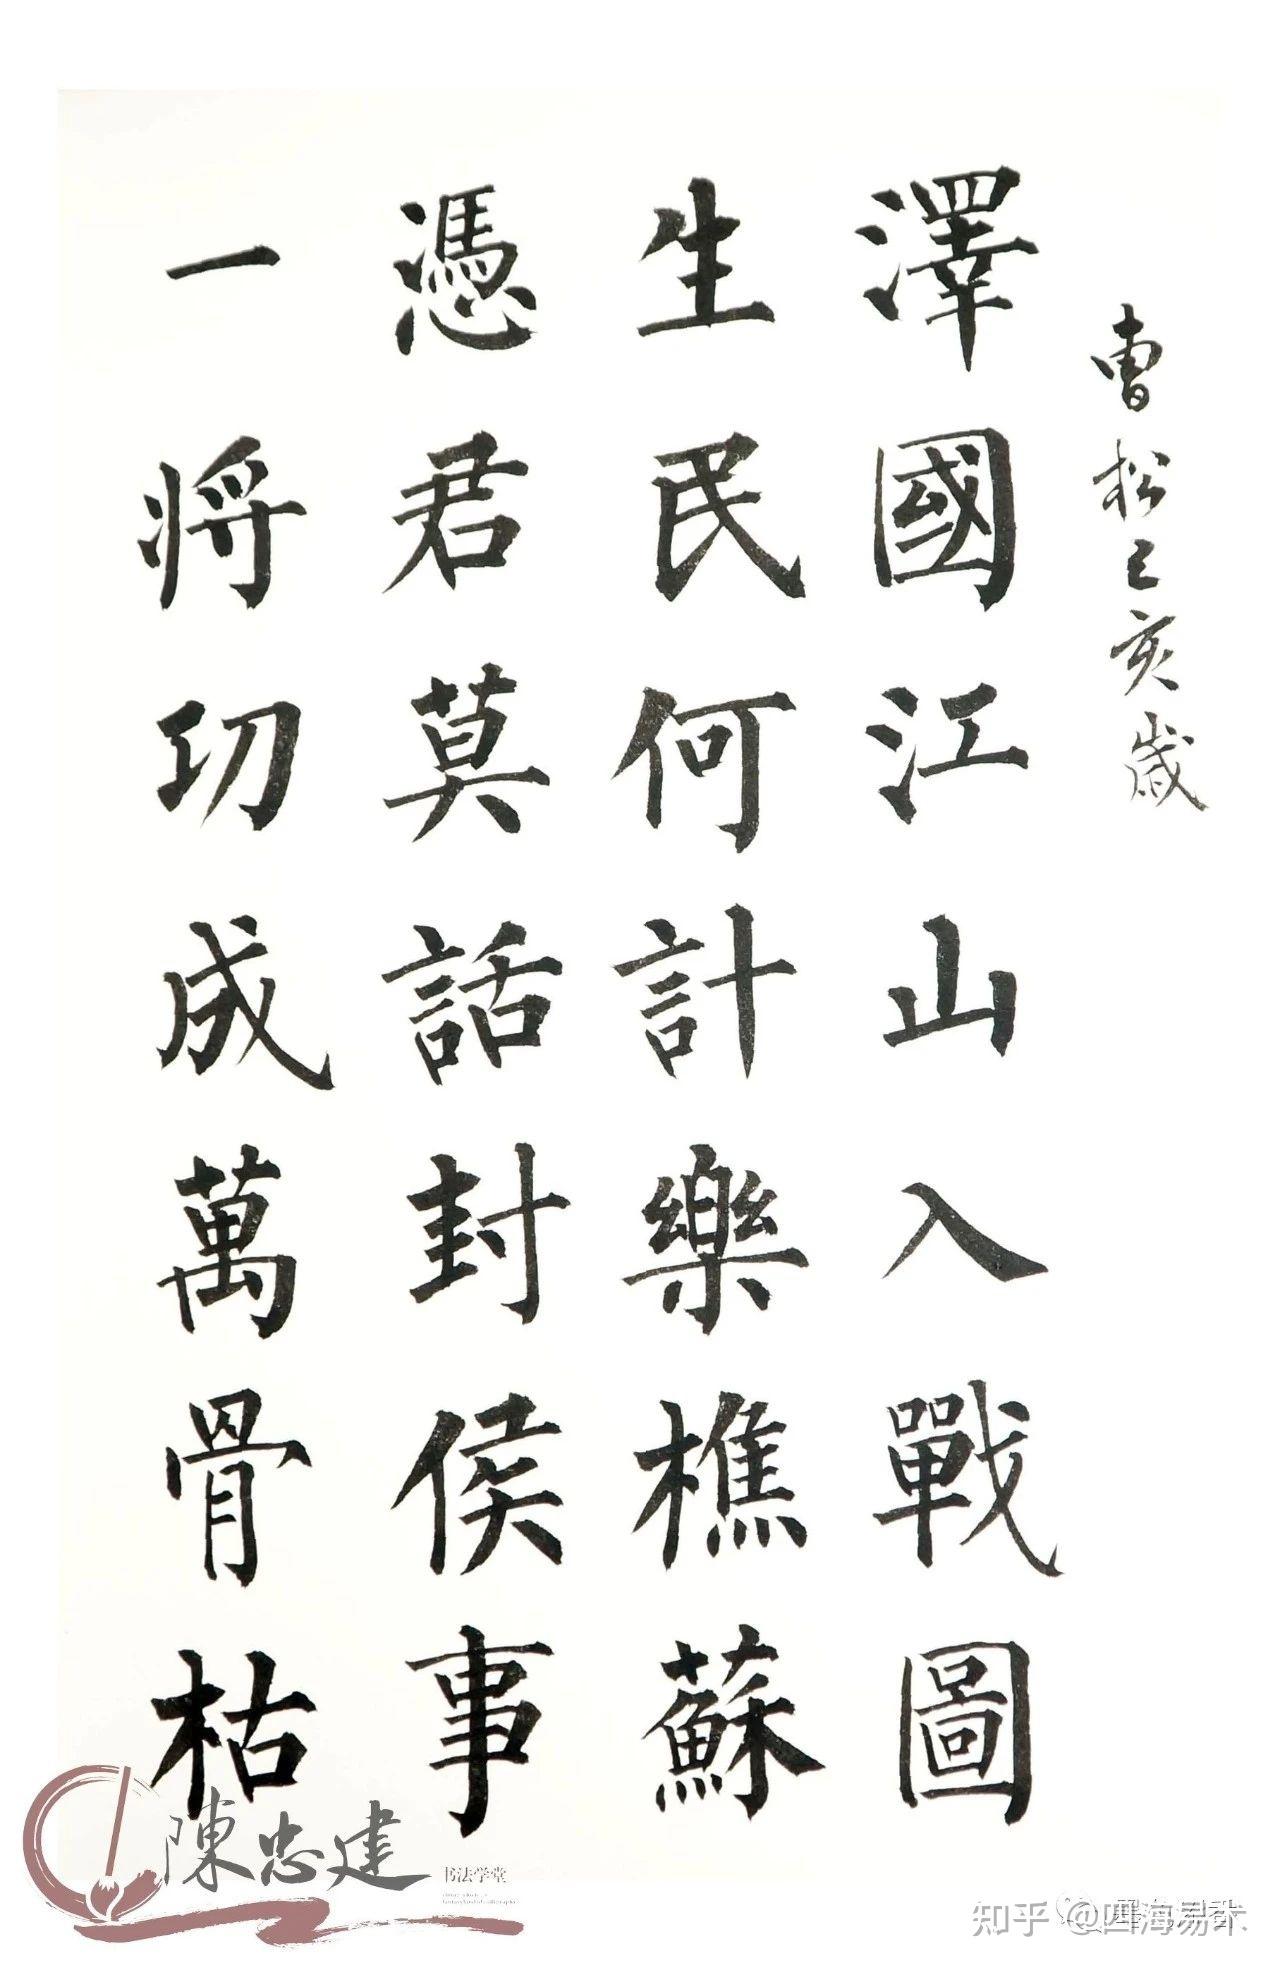 曹松己亥歲
澤國江山入戰圖
生民何計樂樵蘇
憑君莫話封侯事
一将功成萬骨枯
陳忠建
书法学堂
知乎 @四海易